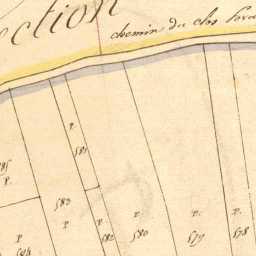 ection
chemin du clos
P.
581
P.
583
P.
P.
582
P.
580
P.
579
P.
578
P.
584